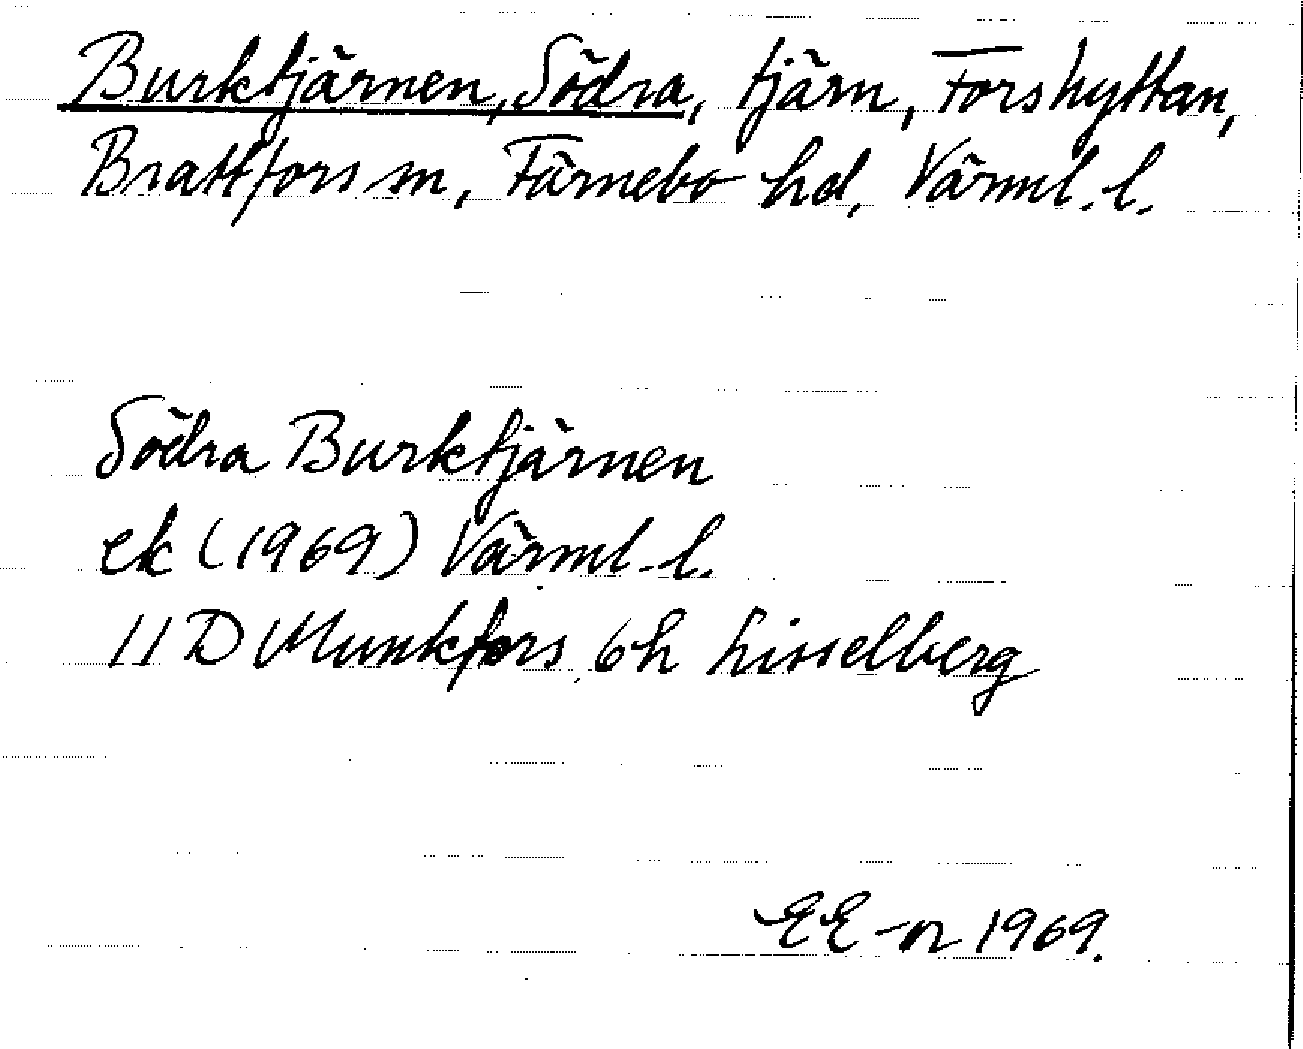 Burktjärnen, Södra, tjärn, Forshyttan,
Brattfors sn, Färnebo hd, Värml. l.
Södra Burktjärnen
ek (1969) Värml. l.
11 D Munkfors 6h Lisselberg
EE-n 1969.